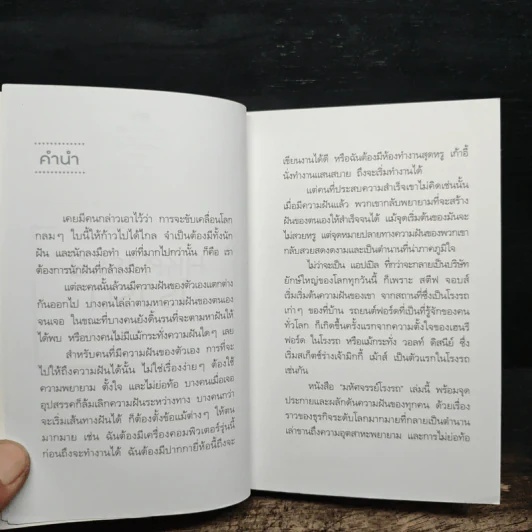 คำนำ
เคยมีคนกล่าวเอาไว้ว่า การจะขับเคลื่อนโลก
กลมๆ ใบนี้ให้ก้าวไปได้ไกล จำเป็นต้องมีทั้งนัก
ฝัน และนักลงมือทำ แต่ที่มากไปกว่านั้น ก็คือ เรา
ต้องการนักฝันที่กล้าลงมือทำ
แต่ละคนนั้นล้วนมีความฝันของตัวเองแตกต่าง
กันออกไป บางคนไล่ล่าตามหาความฝันของตนเอง
จนเจอ ในขณะที่บางคนยังดิ้นรนที่จะตามหาฝันให้
ได้พบ หรือบางคนไม่มีแม้กระทั่งความฝันใดๆ เลย
สำหรับคนที่มีความฝันของตัวเอง การที่จะ
ไปให้ถึงความฝันได้นั้น ไม่ใช่เรื่องง่ายๆ ต้องใช้
ความพยายาม ตั้งใจ และไม่ย่อท้อ บางคนเมื่อเจอ
อุปสรรคก็ล้มเลิกความฝันระหว่างทาง บางคนกว่า
จะเริ่มเส้นทางฝันได้ ก็ต้องตั้งข้อแม้ต่างๆ ให้ตน
มากมาย เช่น ฉันต้องมีเครื่องคอมพิวเตอร์รุ่นนี้
ก่อนถึงจะทำงานได้ ฉันต้องมีปากกายี่ห้อนี้ถึงจะ
เขียนงานได้ดี หรือฉันต้องมีห้องทำงานสุดหรู เก้าอี้
นั่งทำงานแสนสบาย ถึงจะเริ่มทำงานได้
แต่คนที่ประสบความสำเร็จเขาไม่คิดเช่นนั้น
เมื่อมีความฝันแล้ว พวกเขากลับพยายามที่จะสร้าง
ฝันของตนเองให้สำเร็จจนได้ แม้จุดเริ่มต้นของมันจะ
ไม่สวยหรู แต่จุดหมายปลายทางความฝันของพวกเขา
กลับสวยสดงดงามและเป็นตำนานที่น่าภาคภูมิใจ
ไม่ว่าจะเป็น แอปเปิล ที่กว่าจะกลายเป็นบริษัท
ยักษ์ใหญ่ของโลกทุกวันนี้ ก็เพราะ สตีฟ จอบส์
เริ่มเริ่มต้นความฝันของเขา จากสถานที่ซึ่งเป็นโรงรถ
เก่าๆ ของที่บ้าน รถยนต์ฟอร์ดที่เป็นที่รู้จักของคน
ทั่วโลก ก็เกิดขึ้นครั้งแรกจากความตั้งใจของเฮนรี
ฟอร์ด ในโรงรถ หรือแม้กระทั่ง วอลท์ ดิสนีย์ ซึ่ง
เริ่มสเก็ตช์ร่างเจ้ามิกกี้ เม้าส์ เป็นตัวแรกในโรงรถ
เช่นกัน
หนังสือ "มหัศจรรย์โรงรถ" เล่มนี้ พร้อมจุด
ประกายและผลักดันความฝันของทุกคน ด้วยเรื่อง
ราวของธุรกิจระดับโลกมากมายที่กลายเป็นตำนาน
เล่าขานถึงความอุตสาหะพยายาม และการไม่ย่อท้อ